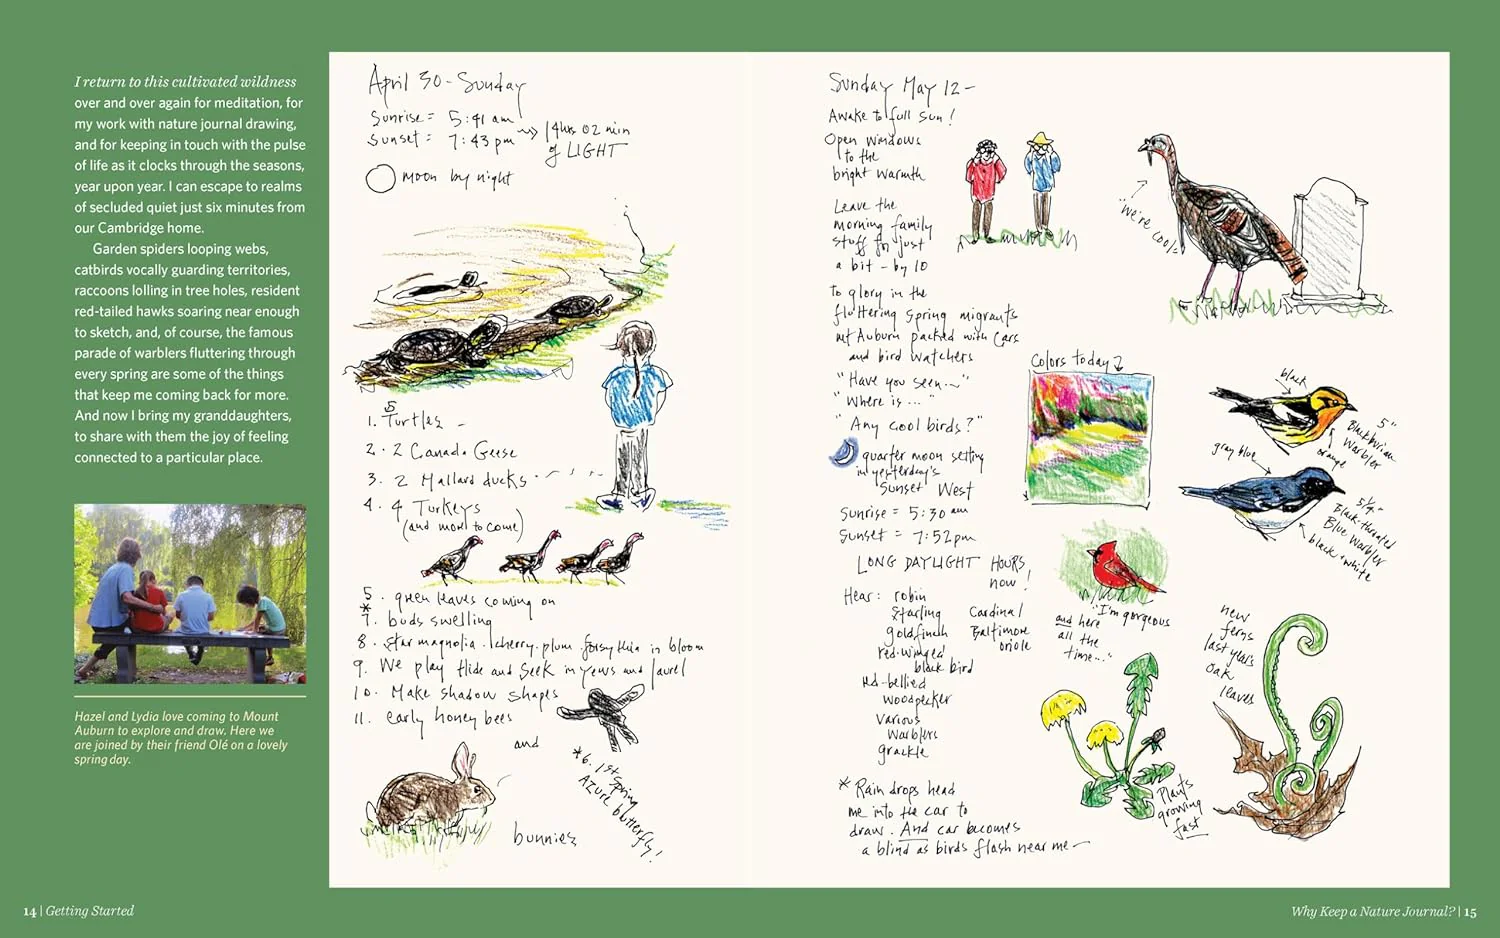 I return to this cultivated wildness
over and over again for meditation, for
my work with nature journal drawing,
and for keeping in touch with the pulse
of life as it clocks through the seasons,
year upon year. I can escape to realms
of secluded quiet just six minutes from
our Cambridge home.
Garden spiders looping webs,
catbirds vocally guarding territories,
raccoons lolling in tree holes, resident
red-tailed hawks soaring near enough
to sketch, and, of course, the famous
parade of warblers fluttering through
every spring are some of the things
that keep me coming back for more.
And now I bring my granddaughters,
to share with them the joy of feeling
connected to a particular place.
Hazel and Lydia love coming to Mount
Auburn to explore and draw. Here we
are joined by their friend Olé on a lovely
spring day.
14 | Getting Started
April 30 - Sunday
Sunrise = 5:41 am
Sunset = 7:43 pm
14 hrs 02 min
of LIGHT
moon by night
1. 5 Turtles -
2. 2 Canada Geese
3. 2 Mallard ducks
4. 4 Turkeys
(and more to come)
5. green leaves coming on
* 7. buds swelling
8. star magnolia . cherry . plum . forsythia in bloom
9. We play Hide and Seek in yews and laurel
10. Make shadow shapes
11. early honey bees
and
bunnies
*6. 1st Spring
Azure butterfly!
Sunday May 12 -
Awake to full sun!
Open windows
to the
bright warmth
Leave the
morning family
stuff for just
a bit - by 10
to glory in the
fluttering spring migrants
Mt Auburn packed with cars
and bird watchers
"Have you seen..."
"Where is ..."
"Any cool birds?"
quarter moon setting
in yesterday's
Sunset West
Sunrise = 5:30 am
Sunset = 7:52 pm
LONG DAYLIGHT HOURS
now!
Hear: robin
starling
goldfinch
red-winged
black bird
red-bellied
woodpecker
various
warblers
grackle
Cardinal
Baltimore
oriole
* Rain drops head
me into the car to
draw. And car becomes
a blind as birds flash near me -
"We're cool"
Colors today
black
5"
Blackburnian
Warbler
orange
gray blue
5 1/4"
Black-throated
Blue Warbler
black + white
"I'm gorgeous
and here
all the
time..."
new
ferns
last years
oak
leaves
Plants
growing
fast
Why Keep a Nature Journal? | 15